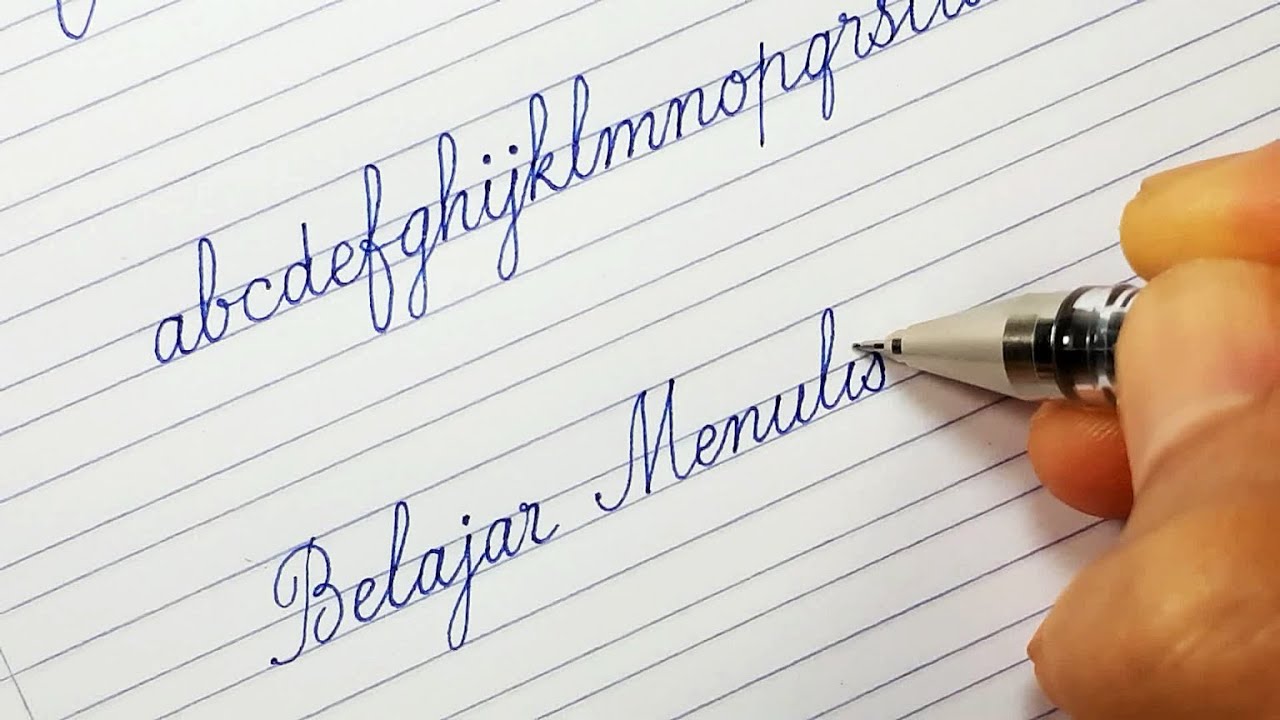 abcdefghijklmnopqrstu
Belajar Menulis